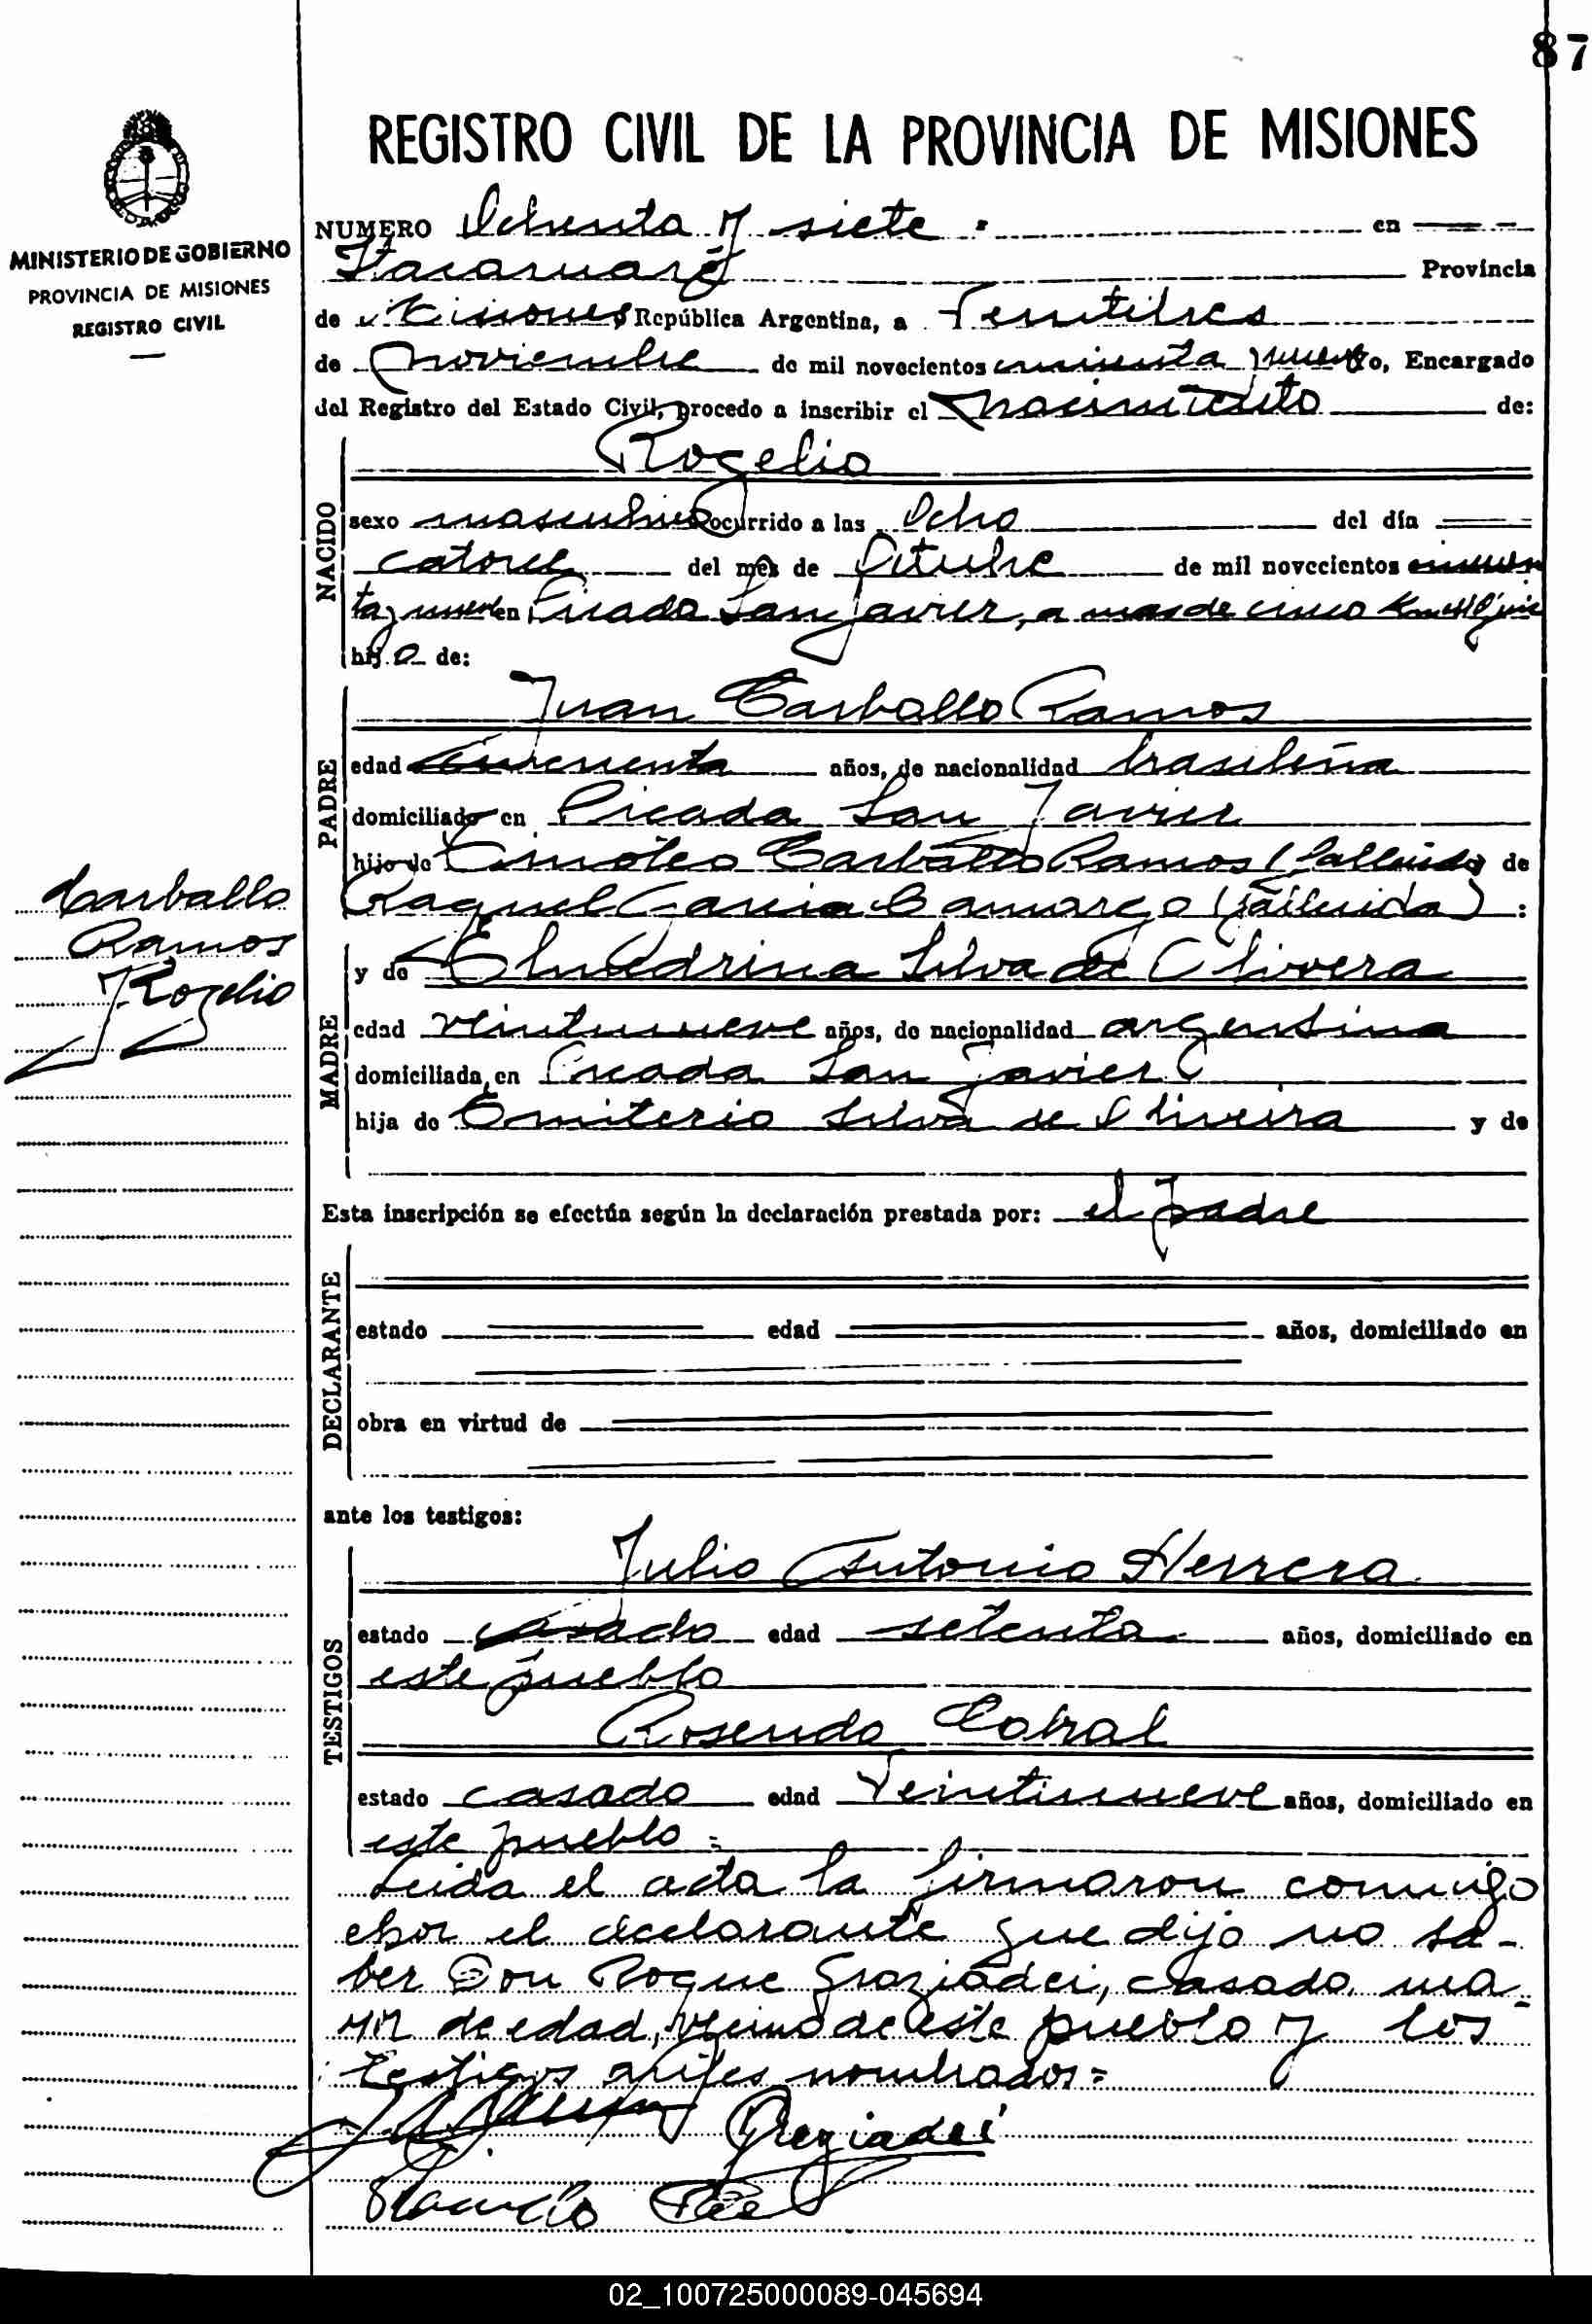 87
REGISTRO CIVIL DE LA PROVINCIA DE MISIONES
MINISTERIO DE GOBIERNO
PROVINCIA DE MISIONES
REGISTRO CIVIL
NUMERO Ochenta y siete en
Itacaruaré Provincia
de Misiones República Argentina, a Veintitres
de noviembre de mil novecientos cincuenta y nueve yo, Encargado
del Registro del Estado Civil, procedo a inscribir el nacimiento de:
NACIDO
Rogelio
sexo masculino ocurrido a las Ocho del día
catorce del mes de Octubre de mil novecientos cincuen
ta y nueve en Picada San Javier, a mas de cinco Km
hijo de:
PADRE
Juan Carballo Ramos
edad cincuenta años, de nacionalidad brasileña
domiciliado en Picada San Javier
hijo de Timoteo Carballo Ramos (fallecido) de
Raquel Garcia Camargo (fallecida) :
MADRE
y de Silva de Olivera
edad veintinueve años, de nacionalidad argentina
domiciliada en Picada San Javier
hija de Emiterio Silva de Oliveira y de
Carballo
Ramos
Rogelio
Esta inscripción se efectúa según la declaración prestada por: el padre
DECLARANTE
estado edad años, domiciliado en
obra en virtud de
ante los testigos:
TESTIGOS
Julio Antonio Herrera
estado casado edad setenta años, domiciliado en
este pueblo
Rosendo Cabral
estado casado edad Veintinueve años, domiciliado en
este pueblo =
Leida el acta la firmaron conmigo
el declarante que dijo no sa-
ber Don Roque Graziadei, casado, ma-
yor de edad, vecino de este pueblo y los
testigos antes nombrados =
Graziadei
02_100725000089-045694